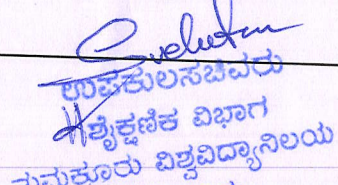 ಉಪಕುಲಸಚಿವರು
ಶೈಕ್ಷಣಿಕ ವಿಭಾಗ
ತುಮಕೂರು ವಿಶ್ವವಿದ್ಯಾನಿಲಯ